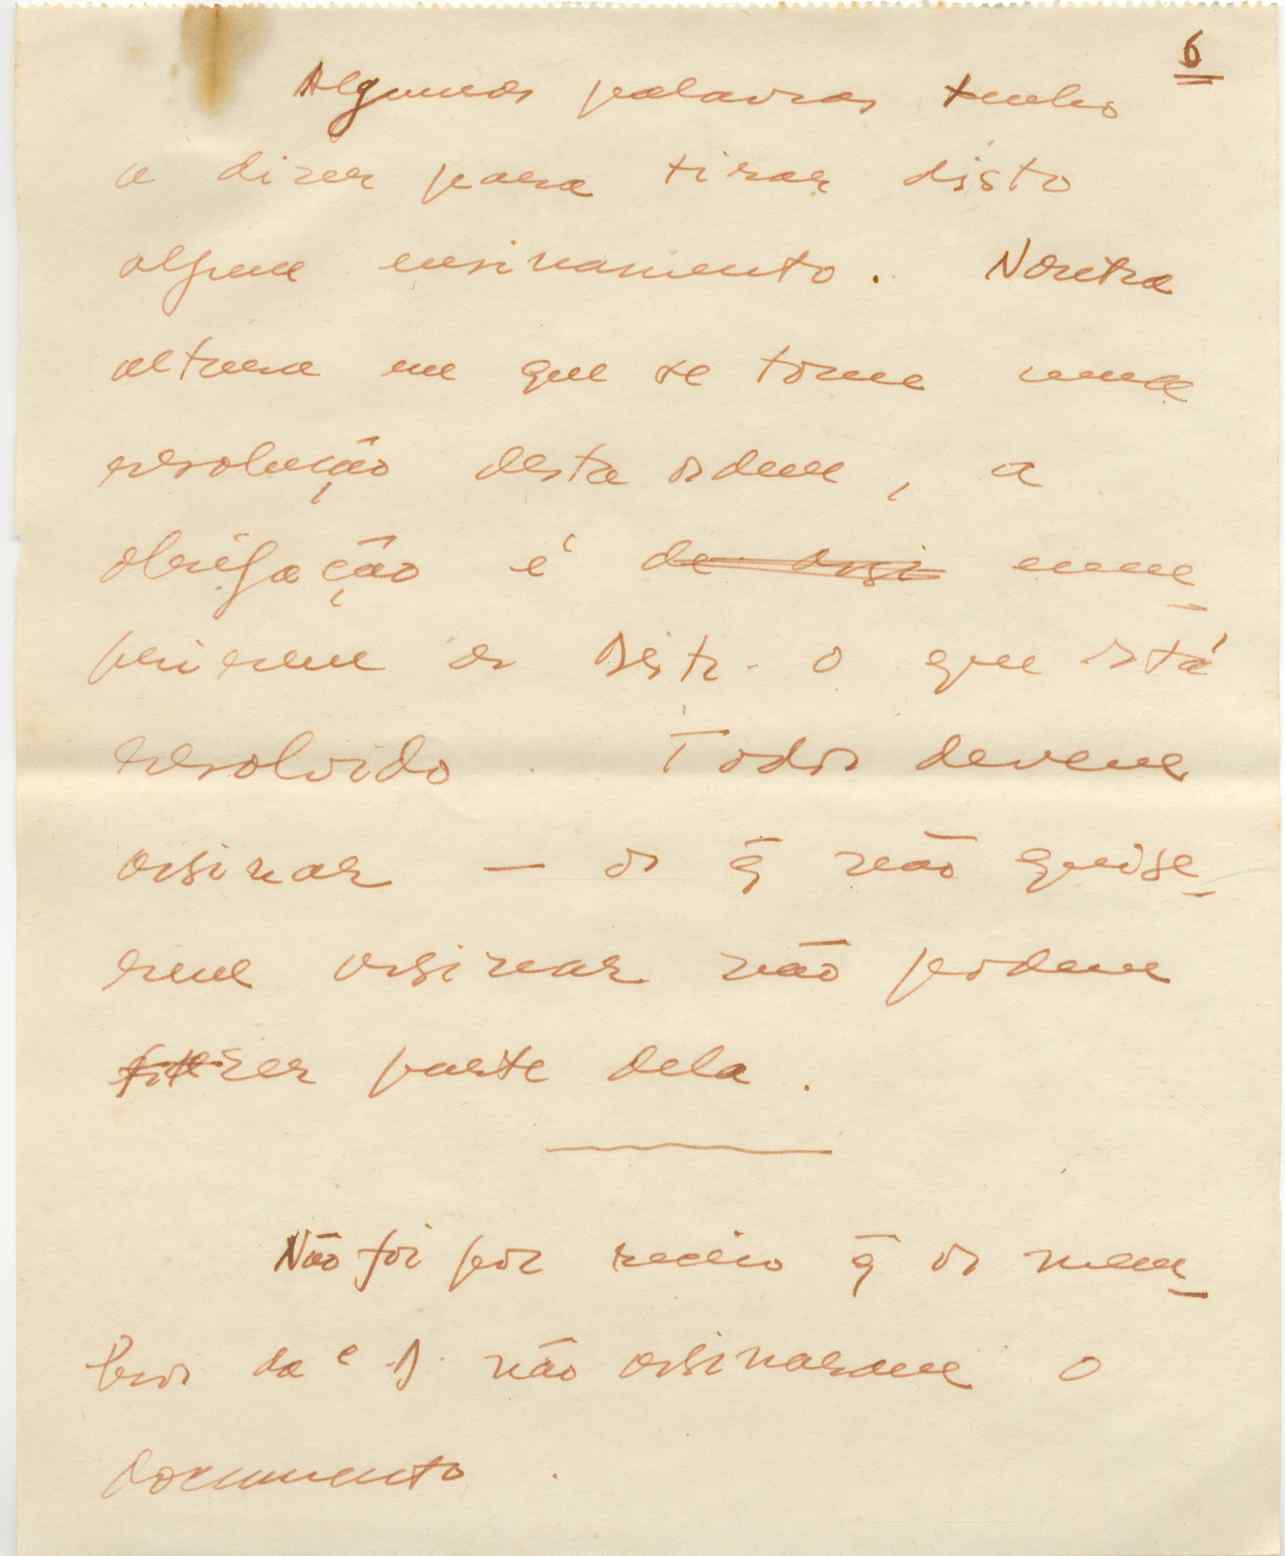 6
Algumas palavras tenho
a dizer para tirar disto
algum ensinamento. Noutra
altura em que se tome uma
resolução desta ordem, a
obrigação é de assi cum-
prirem os Distr. o que está
resolvido. Todos devem
assinar — os q̃ não quise-
rem assinar não podem
fazer parte dela.
Não foi por receio q̃ os mem-
bros da D. não assinaram o
documento.